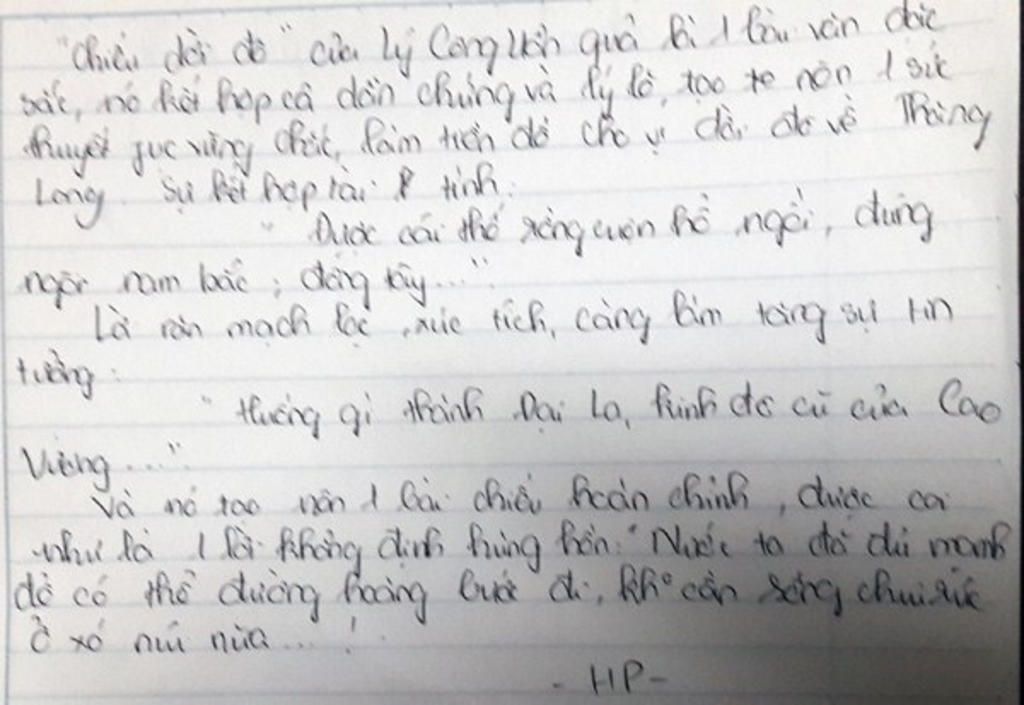 "Chiếu dời đô" của Lý Công Uẩn quả là 1 bài văn đặc
sắc, nó kết hợp cả dẫn chứng và lý lẽ, tạo ra nên 1 sức
thuyết phục vững chắc, làm tiền đề cho vụ dời đô về Thăng
Long. Sự kết hợp tài & tình:
" Được cái thế rồng cuộn hổ ngồi, đúng
ngôi nam bắc; đông tây...."
Là văn mạch lạc, xúc tích, càng làm tăng sự tin
tưởng:
" Huống gì thành Đại La, kinh đô cũ của Cao
Vương...."
Và nó tạo nên 1 bài chiếu hoàn chỉnh, được coi
như là 1 lời khẳng định hùng hồn: "Nước ta đã đủ mạnh
để có thể đường hoàng bước đi, kh° cần sống chui rúc
ở xó núi nữa...!
- HP -